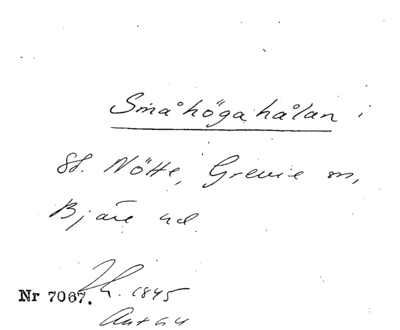 Småhögahålan i
St. Nötte, Grevie sn,
Bjäre hd
Nr 7067. 1845